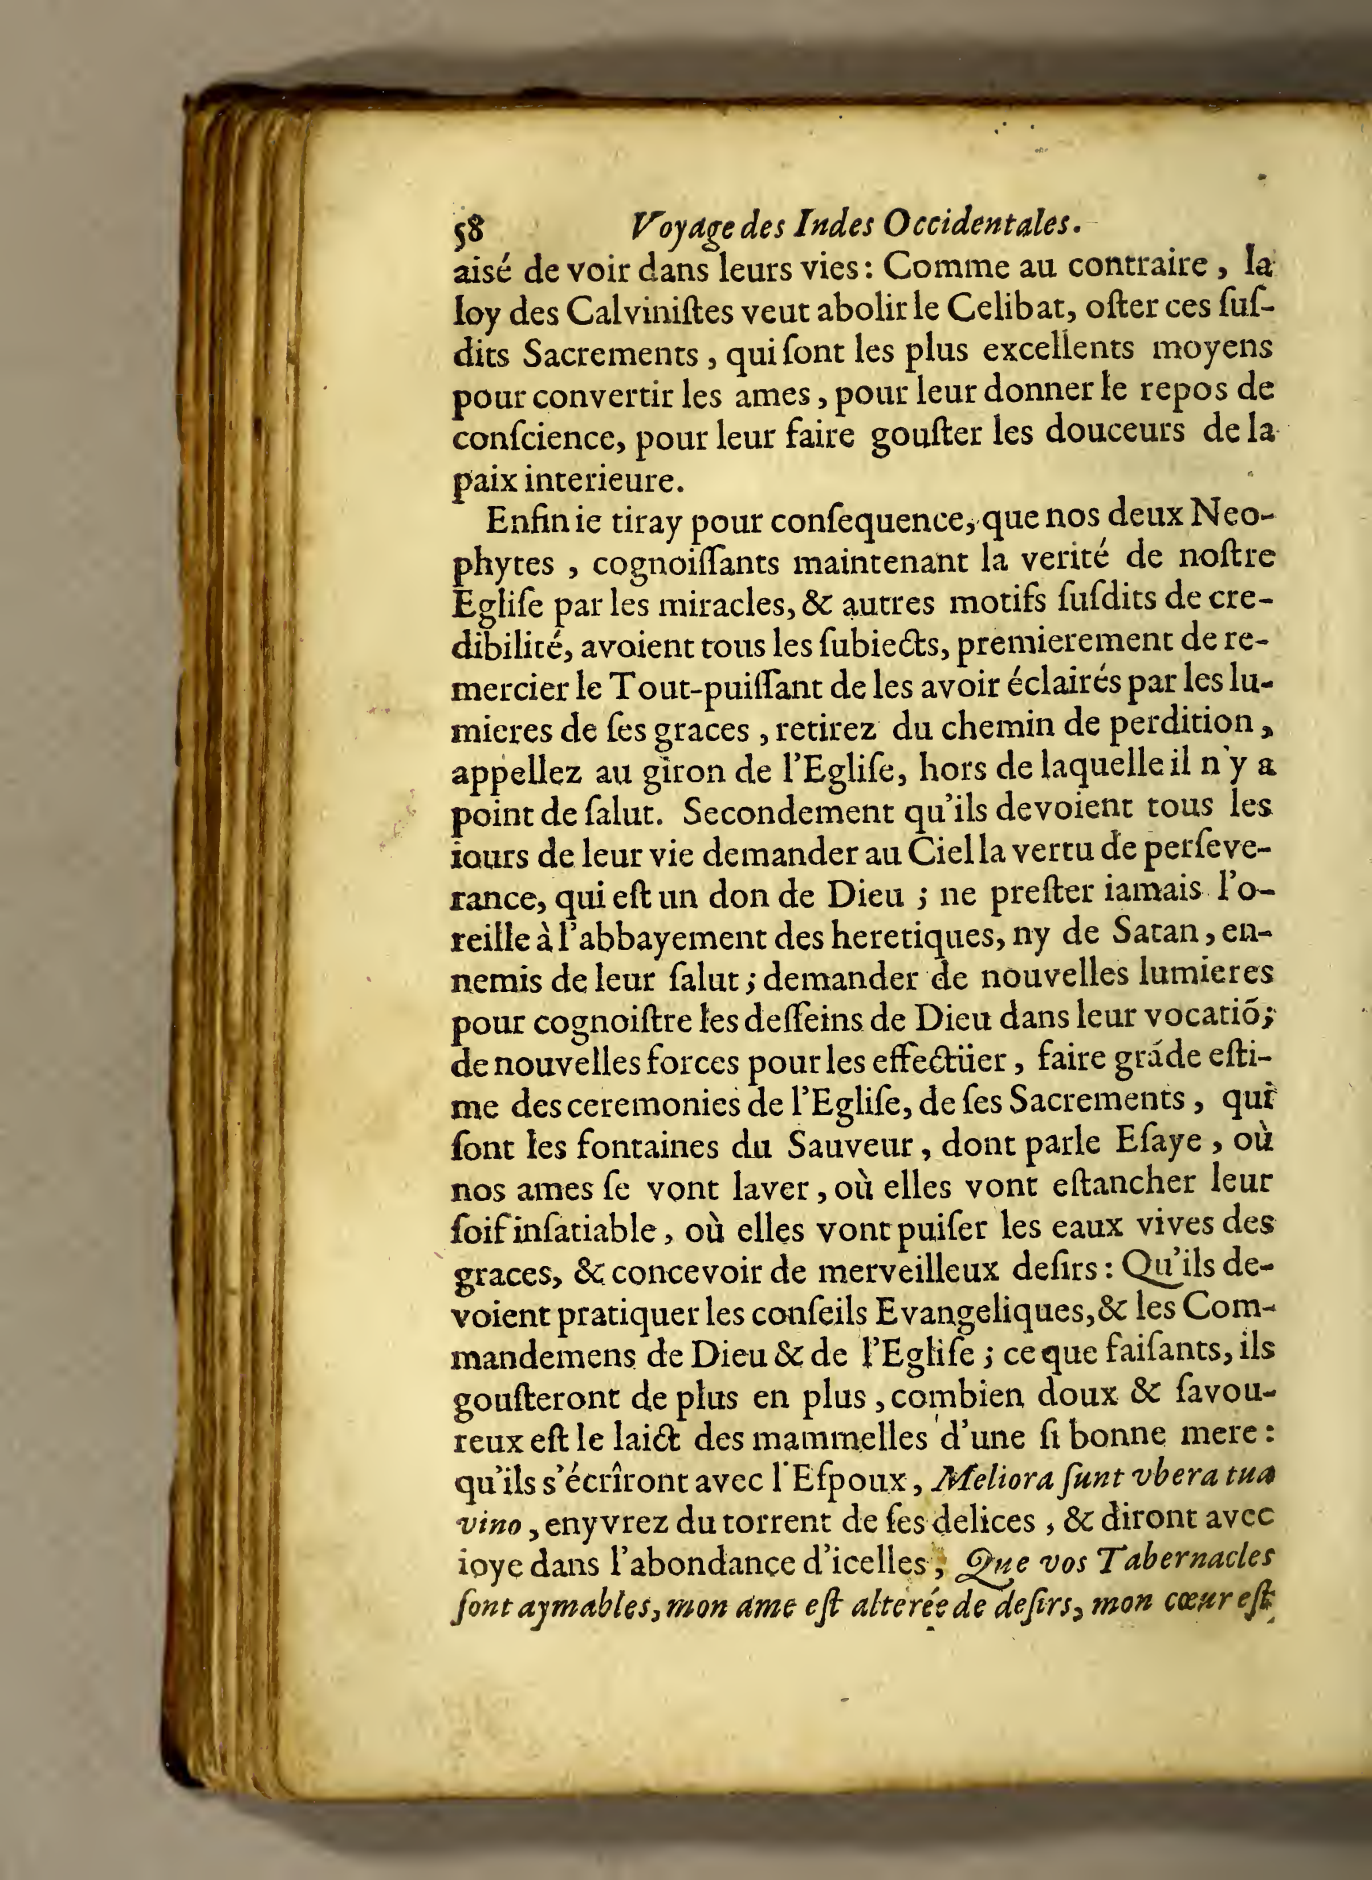 58 Voyage des Indes Occidentales.
aisé de voir dans leurs vies : Comme au contraire , la
loy des Calviniſtes veut abolir le Celibat, oſter ces ſuſ-
dits Sacrements , qui ſont les plus excellents moyens
pour convertir les ames , pour leur donner le repos de
conſcience, pour leur faire gouſter les douceurs de la
paix interieure.
Enfin ie tiray pour conſequence, que nos deux Neo-
phytes , cognoiſſants maintenant la verité de noſtre
Egliſe par les miracles, & autres motifs ſuſdits de cre-
dibilité, avoient tous les ſubiects, premierement de re-
mercier le Tout-puiſſant de les avoir éclairés par les lu-
mieres de ſes graces , retirez du chemin de perdition ,
appellez au giron de l'Egliſe, hors de laquelle il n'y a
point de ſalut. Secondement qu'ils devoient tous les
iours de leur vie demander au Ciel la vertu de perſeve-
rance, qui eſt un don de Dieu ; ne preſter iamais l'o-
reille à l'abbayement des heretiques, ny de Satan , en-
nemis de leur ſalut ; demander de nouvelles lumieres
pour cognoiſtre les deſſeins de Dieu dans leur vocatiõ;
de nouvelles forces pour les effectüer , faire gráde eſti-
me des ceremonies de l'Egliſe, de ſes Sacrements , qui
ſont les fontaines du Sauveur , dont parle Eſaye , où
nos ames ſe vont laver , où elles vont eſtancher leur
ſoif inſatiable , où elles vont puiſer les eaux vives des
graces, & concevoir de merveilleux deſirs : Qu'ils de-
voient pratiquer les conſeils Evangeliques, & les Com-
mandemens de Dieu & de l'Egliſe ; ce que faiſants, ils
gouſteront de plus en plus , combien doux & ſavou-
reux eſt le laict des mammelles d'une ſi bonne mere :
qu'ils s'écrîront avec l'Eſpoux , Meliora ſunt vbera tua
vino , enyvrez du torrent de ſes delices , & diront avec
ioye dans l'abondance d'icelles , Que vos Tabernacles
ſont aymables, mon ame eſt alterée de deſirs, mon cœur eſt